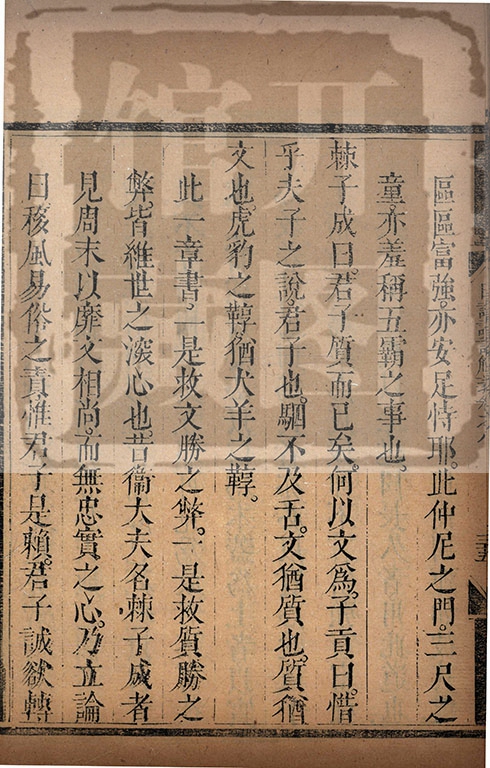 區區富強。亦安足恃耶。此仲尼之門。三尺之
童。亦羞稱五霸之事也。
棘子成曰。君子質而已矣。何以文爲。子貢曰。惜
乎夫子之說。君子也。駟不及舌。文猶質也。質猶
文也。虎豹之鞟。猶犬羊之鞟。
此一章書。一是救文勝之弊。一是救質勝之
弊。皆維世之深心也。昔衞大夫名棘子成者
見周末以靡文相尚。而無忠實之心。乃立論
曰。移風易俗之責。惟君子是賴。君子誠欲轉